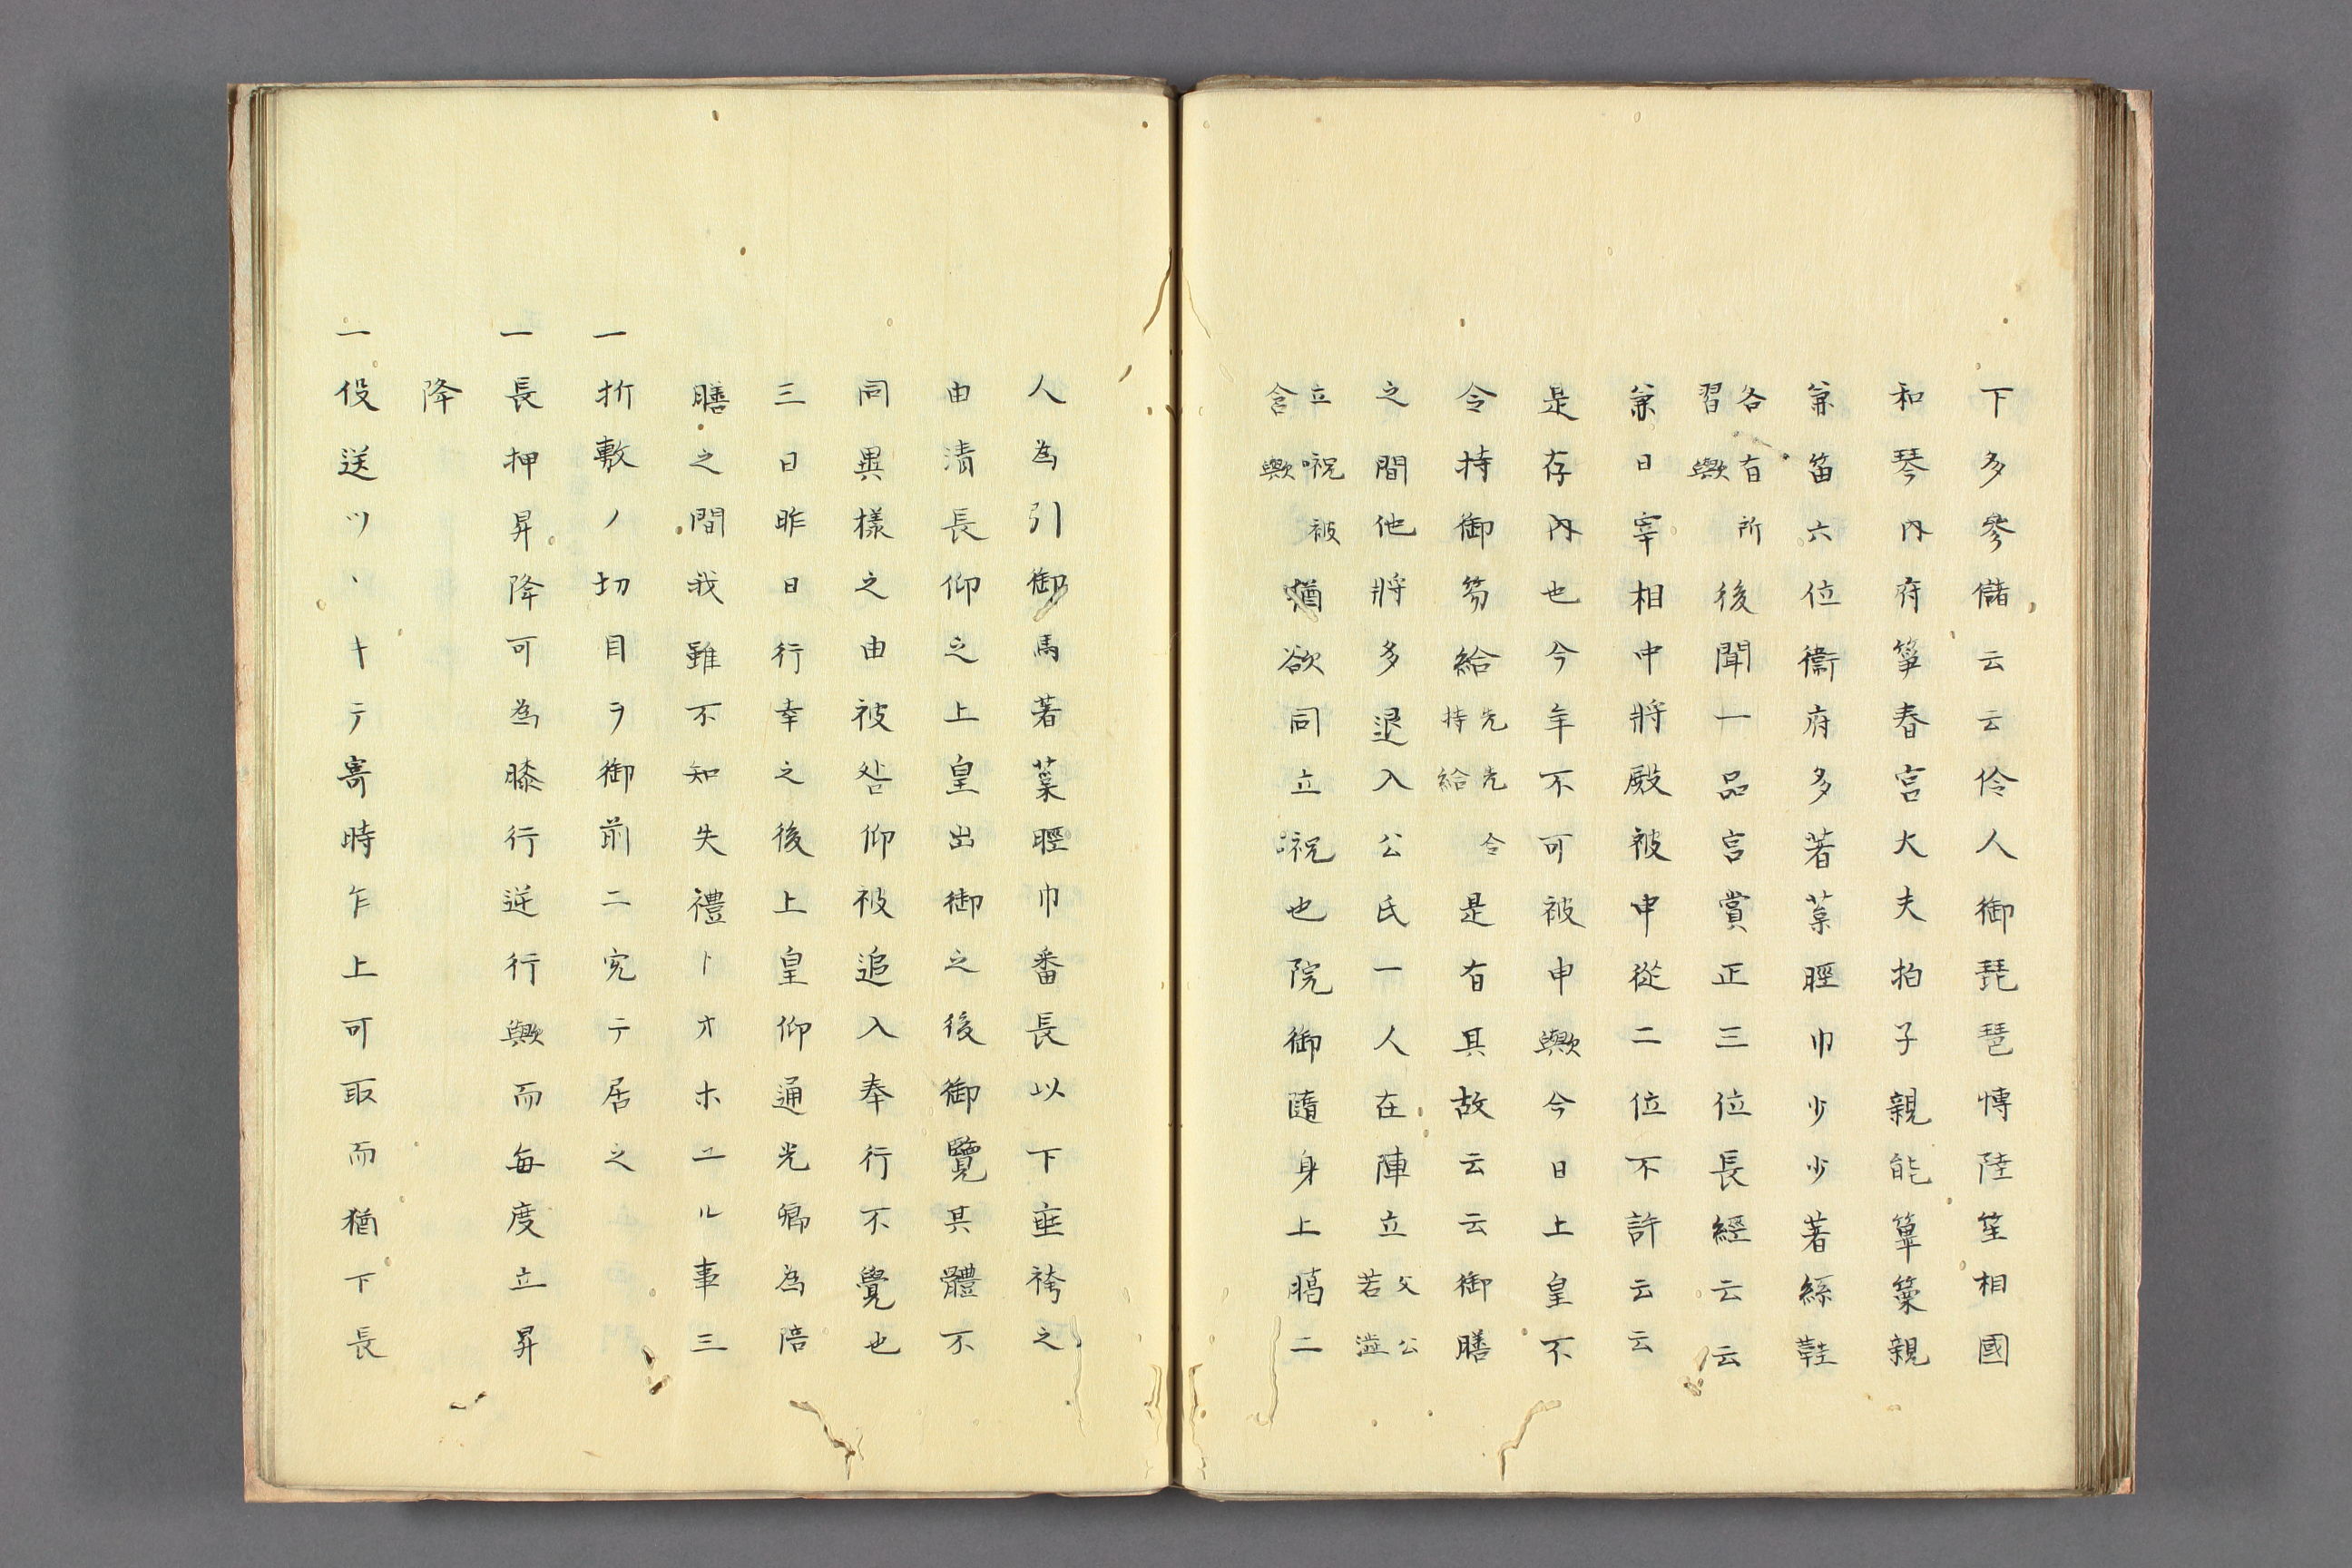 下多參儲云云伶人御琵琶慱陸笙相國
和琴内府箏春宮大夫拍子親能篳篥親
兼笛六位衞府多著藁脛巾少少著絲鞋
各有所習歟後聞一品宮賞正三位長經云云
兼日宰相中將殿被申從二位不許云云
是存内也今年不可被申歟今日上皇不
令持御笏給先先令持給是有其故云云御膳
之間他將多退入公氏一人在陣立父公若澁
立呪被含歟猶欲同立呪也院御隨身上臈二
人為引御馬著藁脛巾番長以下垂袴之
由清長仰之上皇出御之後御覽其體不
同異樣之由被咎仰被追入奉行不覺也
三日昨日行幸之後上皇仰通光卿為陪
膳之間我雖不知失禮トオホユル事三
一折敷ノ切目ヲ御前ニ宛テ居之
一長押昇降可為膝行逆行歟而每度立昇
降
一役送ツヽキテ寄時乍上可取而猶下長